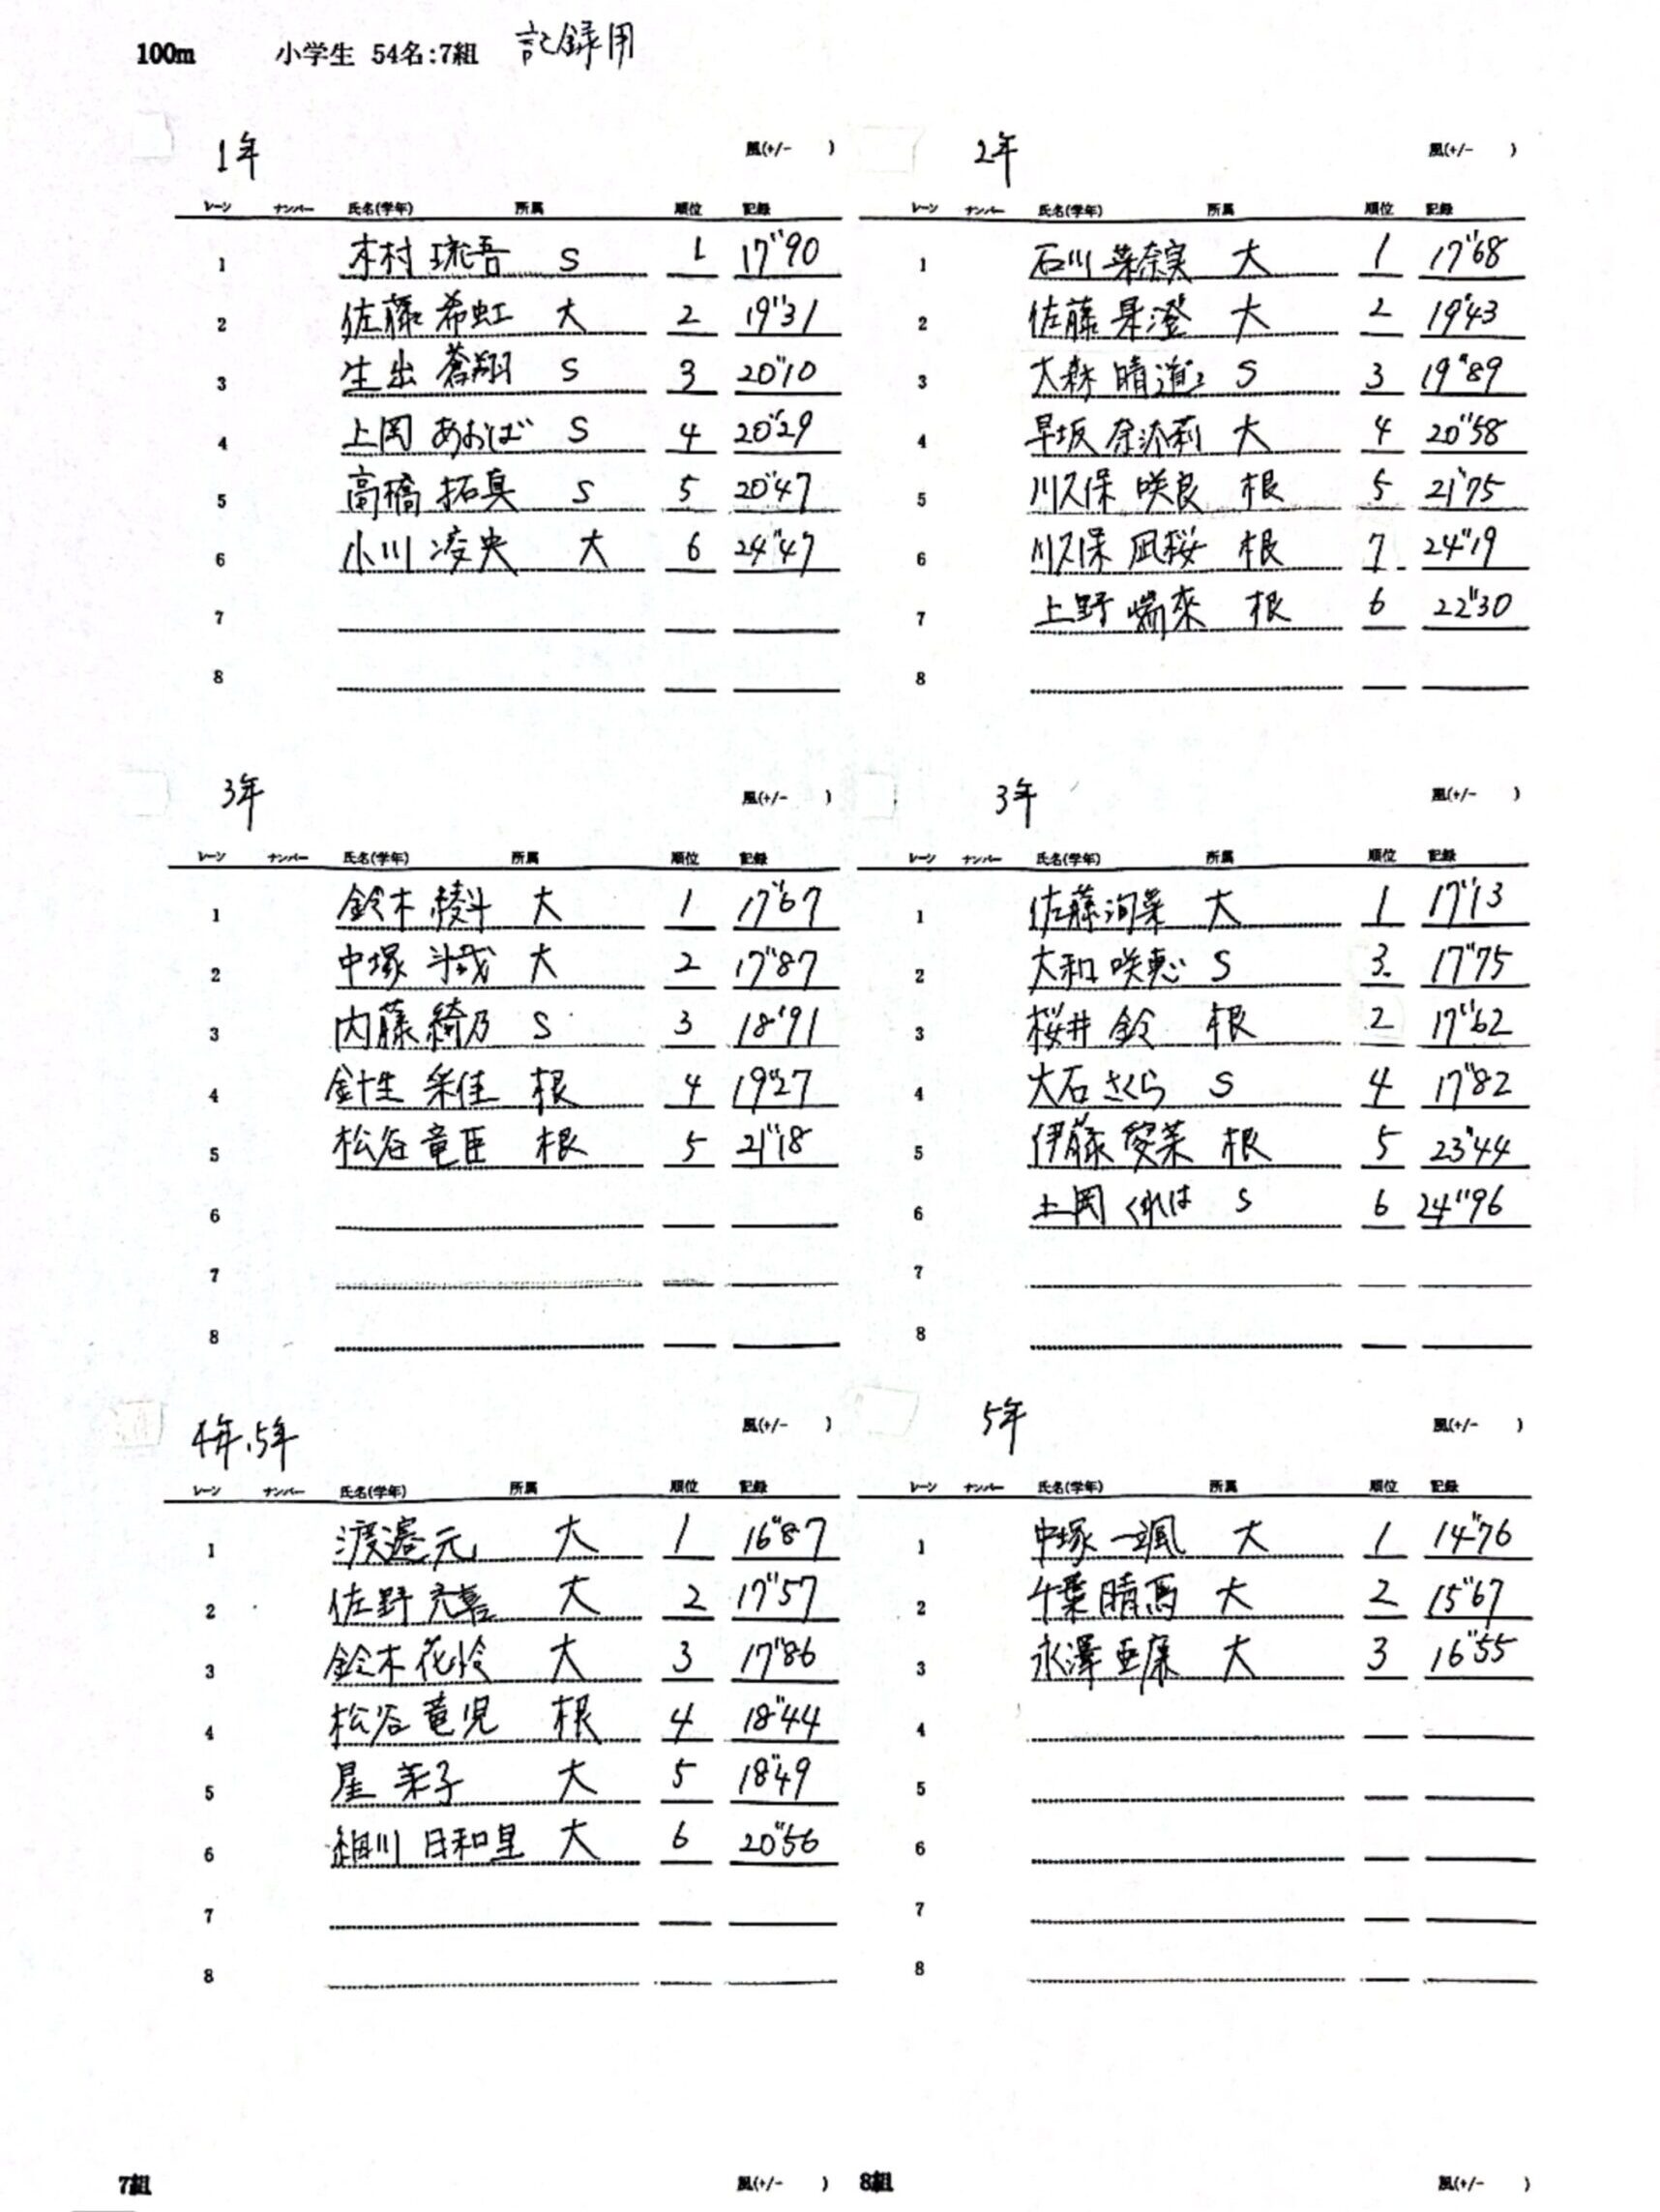 100m 小学生 54名:7組 記録用
1年 風(+/- )
レーン ナンバー 氏名(学年) 所属 順位 記録
1 木村 琉吾 S 1 17"90
2 佐藤 希虹 大 2 19"31
3 生出 蒼翔 S 3 20"10
4 上岡 あおば S 4 20"29
5 高橋 拓真 S 5 20"47
6 小川 凌央 大 6 24"47
7
8
2年 風(+/- )
レーン ナンバー 氏名(学年) 所属 順位 記録
1 石川 菜奈実 大 1 17"68
2 佐藤 果澄 大 2 19"43
3 大森 晴道 S 3 19"89
4 早坂 大 4 20"58
5 川久保 咲良 根 5 21"75
6 川久保 凪桜 根 7 24"19
7 上野 根 6 22"30
8
3年 風(+/- )
レーン ナンバー 氏名(学年) 所属 順位 記録
1 鈴木 綾斗 大 1 17"67
2 中塚 斗哉 大 2 17"87
3 内藤 綺乃 S 3 18"91
4 針生 采佳 根 4 19"27
5 松谷 竜臣 根 5 21"18
6
7
8
3年 風(+/- )
レーン ナンバー 氏名(学年) 所属 順位 記録
1 佐藤 洵菜 大 1 17"13
2 大和 咲恵 S 3 17"75
3 桜井 鈴 根 2 17"62
4 大石 さくら S 4 17"82
5 伊藤 愛菜 根 5 23"44
6 上岡 くれは S 6 24"96
7
8
4年.5年 風(+/- )
レーン ナンバー 氏名(学年) 所属 順位 記録
1 渡邉 元 大 1 16"87
2 佐野 充喜 大 2 17"57
3 鈴木 花怜 大 3 17"86
4 松谷 竜児 根 4 18"44
5 星 大 5 18"49
6 細川 日和里 大 6 20"56
7
8
5年 風(+/- )
レーン ナンバー 氏名(学年) 所属 順位 記録
1 中塚 一颯 大 1 14"76
2 千葉 晴馬 大 2 15"67
3 永澤 亜廉 大 3 16"55
4
5
6
7
8
7組 風(+/- ) 8組 風(+/- )